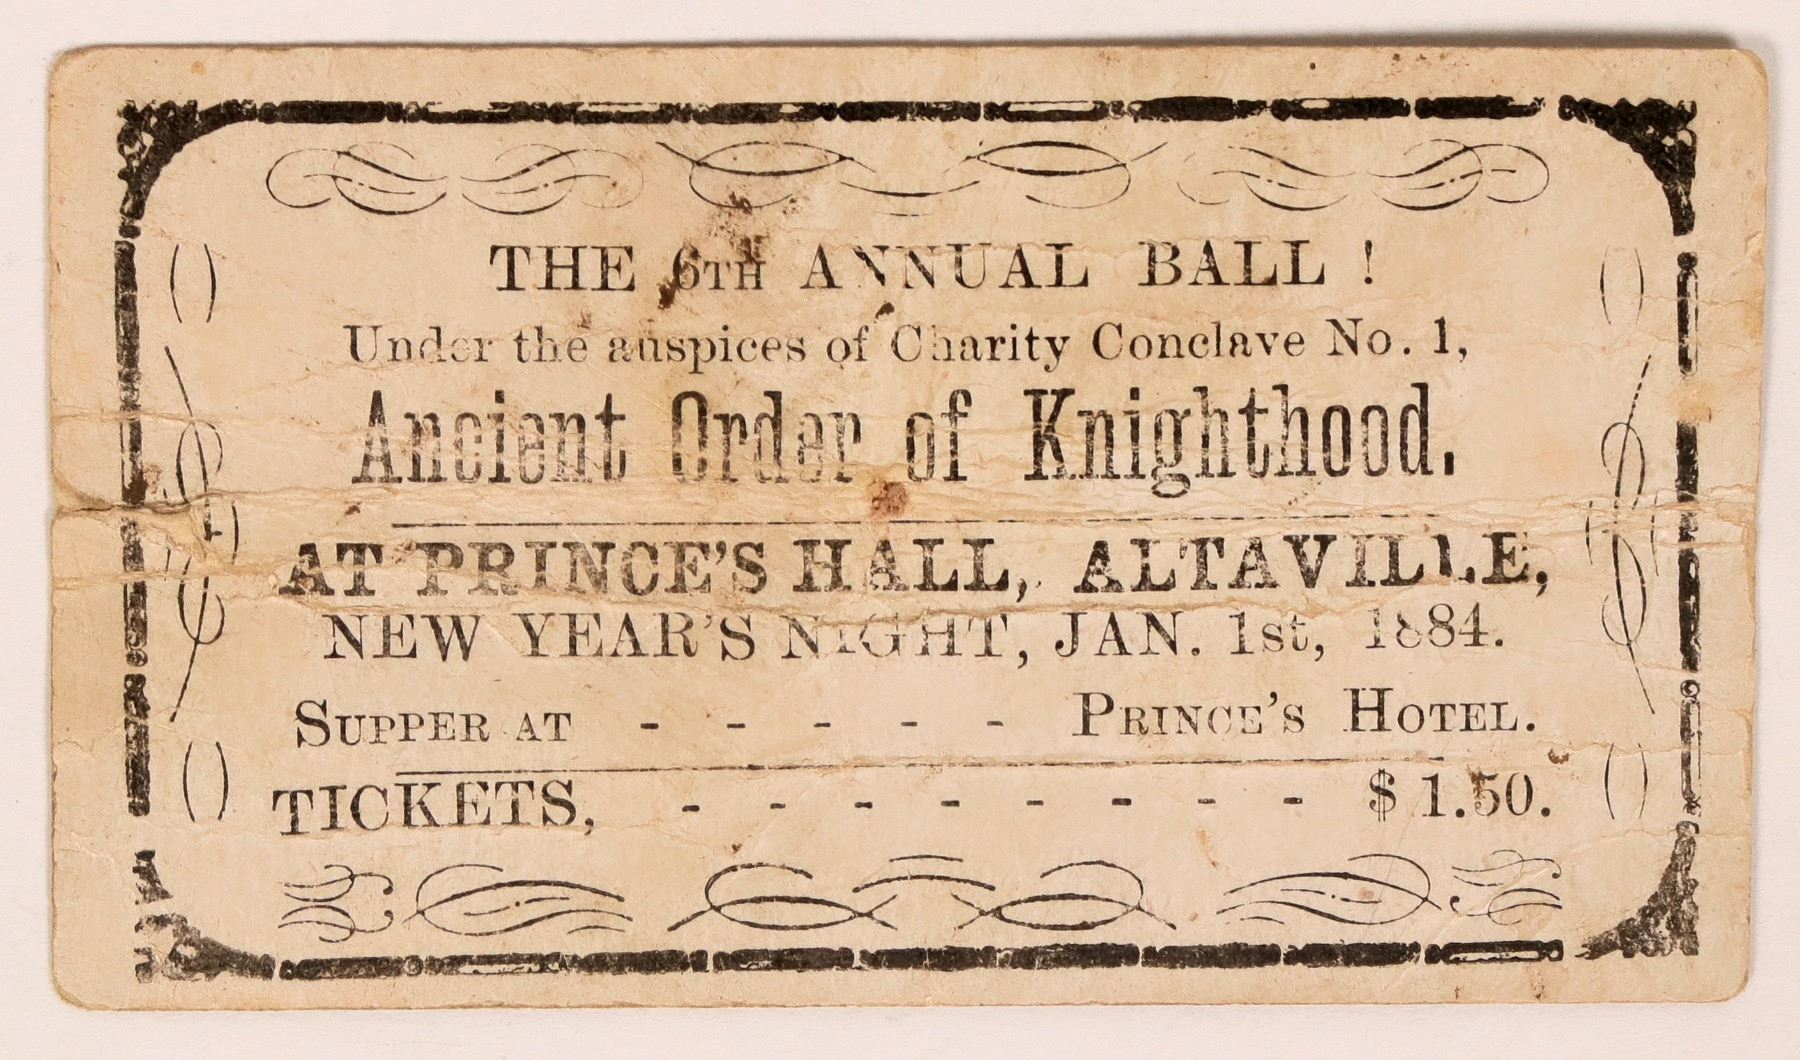 THE 6TH ANNUAL BALL !
Under the auspices of Charity Conclave No. 1,
Ancient Order of Knighthood.
AT PRINCE'S HALL, ALTAVILLE,
NEW YEAR'S NIGHT, JAN. 1st, 1884.
SUPPER AT - - - - - PRINCE'S HOTEL.
TICKETS, - - - - - - - - $ 1.50.